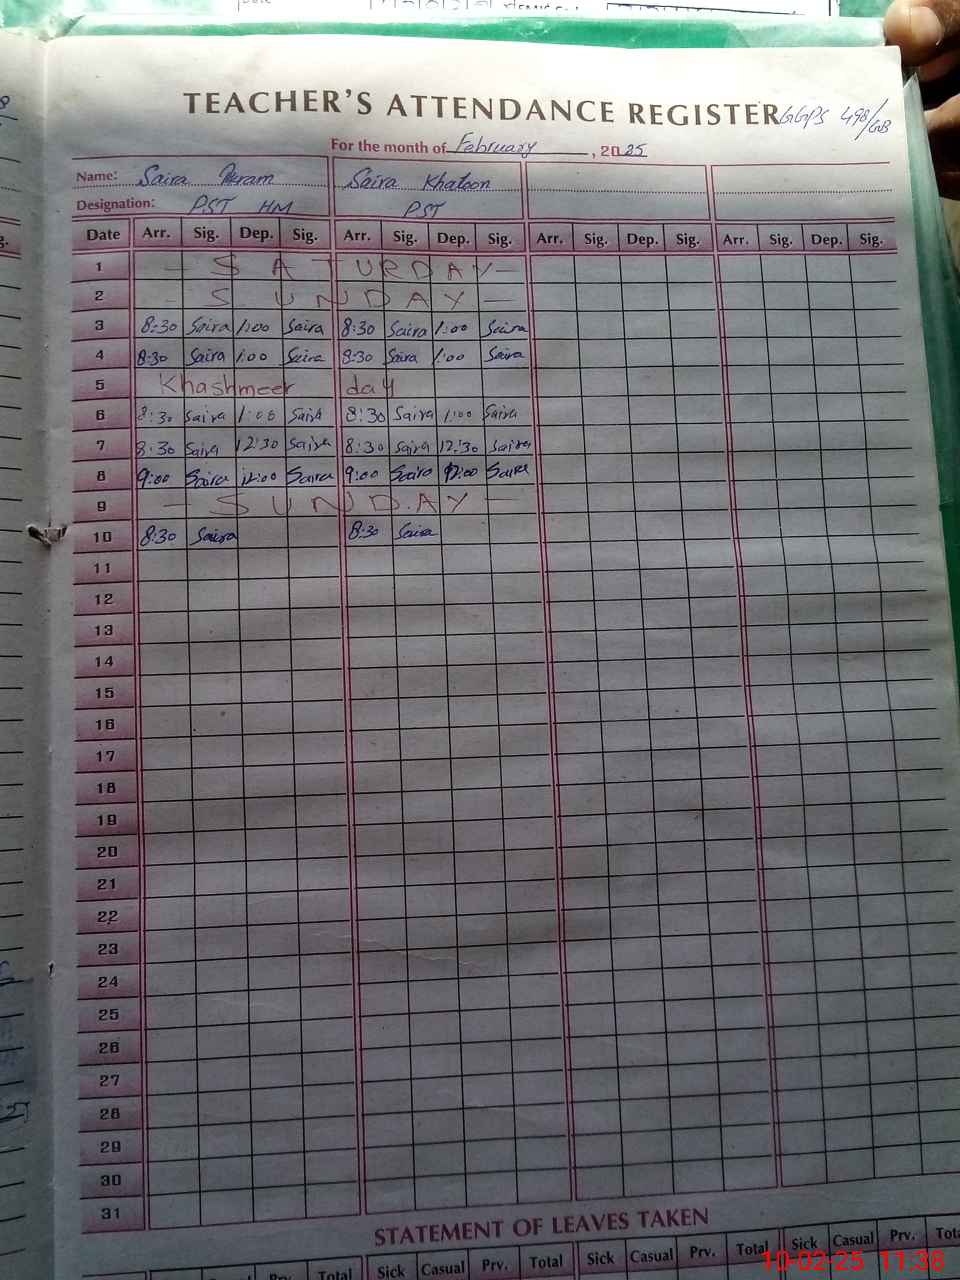 TEACHER'S ATTENDANCE REGISTER GGPS 498/GB
For the month of February, 2025
Name: Saira Akram Saira Khatoon
Designation: PST HM PST
Date Arr. Sig. Dep. Sig. Arr. Sig. Dep. Sig. Arr. Sig. Dep. Sig. Arr. Sig. Dep. Sig.
1 - SATURDAY -
2 - SUNDAY -
3 8:30 Saira 1:00 Saira 8:30 Saira 1:00 Saira
4 8:30 Saira 1:00 Saira 8:30 Saira 1:00 Saira
5 Khashmeer day
6 8:30 Saira 1:00 Saira 8:30 Saira 1:00 Saira
7 8:30 Saira 12:30 Saira 8:30 Saira 12:30 Saira
8 9:00 Saira 12:00 Saira 9:00 Saira 12:00 Saira
9 - SUNDAY -
10 8:30 Saira 8:30 Saira
11
12
13
14
15
16
17
18
19
20
21
22
23
24
25
26
27
28
29
30
31
STATEMENT OF LEAVES TAKEN
Casual Prv. Total Sick Casual Prv. Total Sick Casual Prv. Total Sick Casual Prv.
10-02-25 11:38